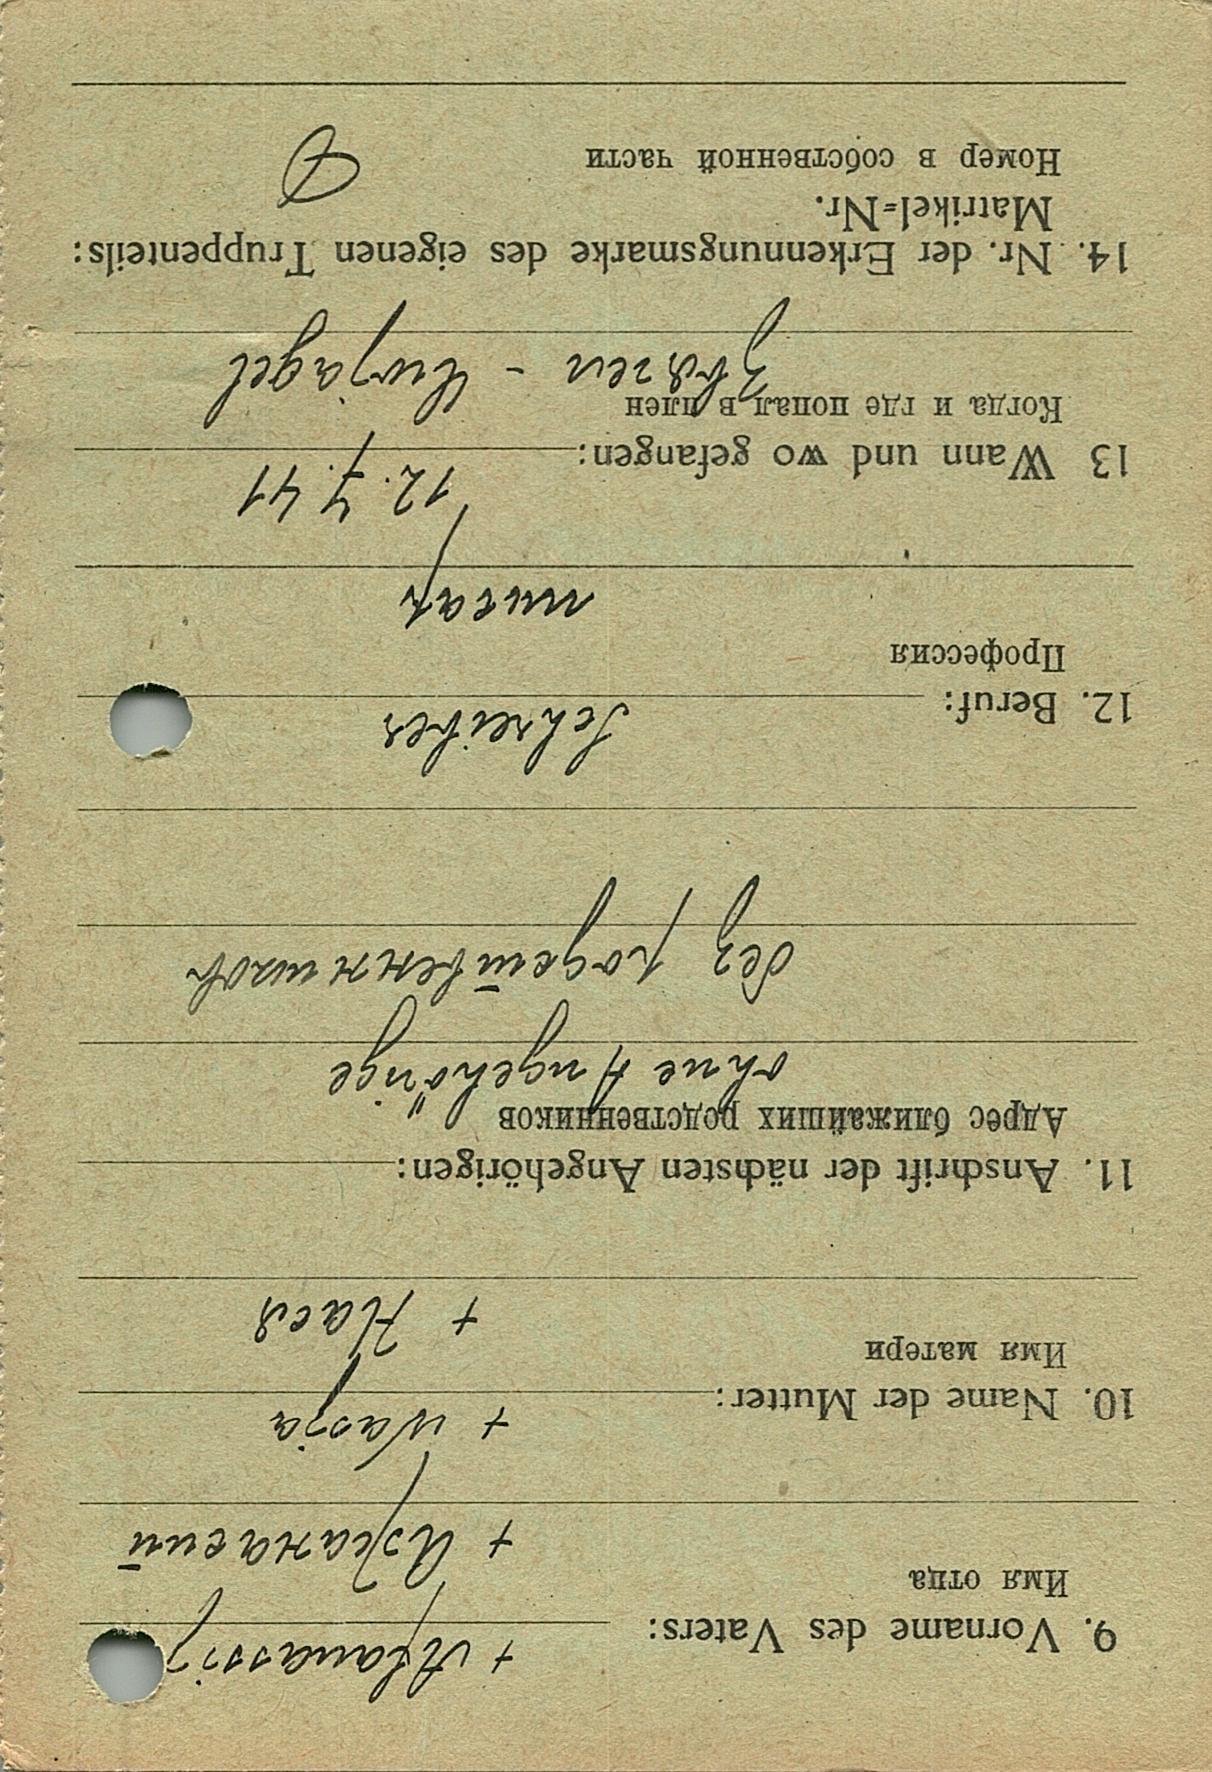 9. Vorname des Vaters: + Afanassij
Имя отца
+ Афанасий
10. Name der Mutter: + Wasja
Имя матери
+ Нася
11. Anschrift der nächsten Angehörigen:
Адрес ближайших родственников
ohne Angehörige
без родственников
12. Beruf: Schreiber
Профессия
писарь
13 Wann und wo gefangen: 12. 7. 41
Когда и где попал в плен
14. Nr. der Erkennungsmarke des eigenen Truppenteils:
Matrikel-Nr.
Номер в собственной части